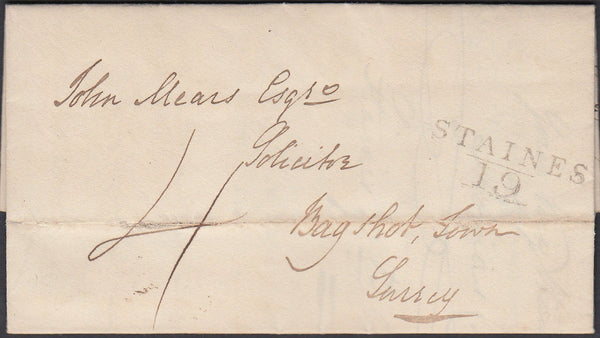 John Mears Esqro
Solicitor
Bagshot, Town
Surrey
4
STAINES
19